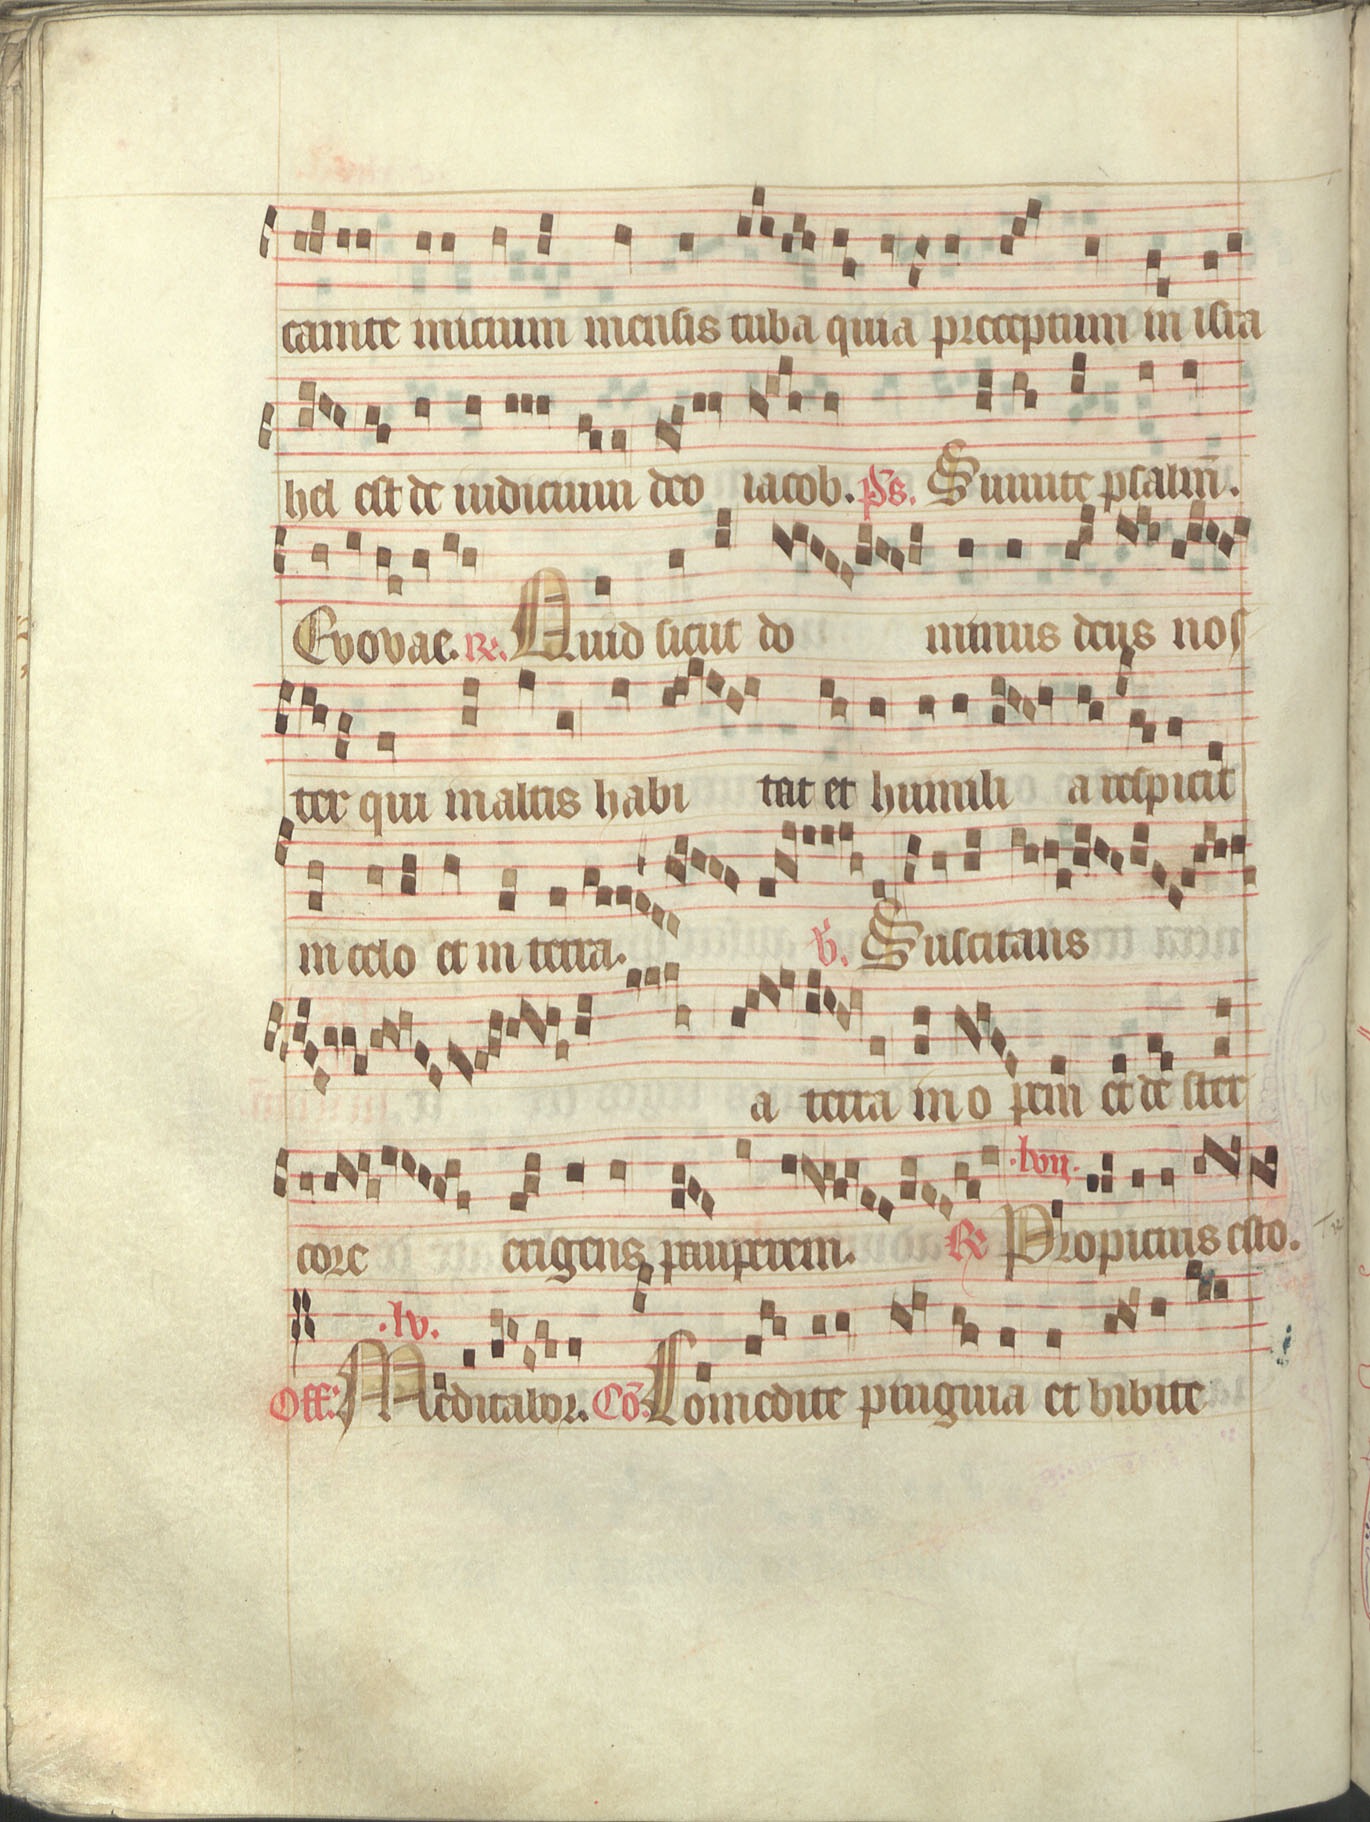 canite inicium mensis tuba quia preceptum in isra
hel est et iudicium deo iacob. ps. Sumite psalm̄.
Evovae. R̃. Quid sicut do minus deus nos
ter qui in altis habi tat et humili a respicit
in celo et in terra. v̄. Suscitans
a terra in o pem et de ster
core erigens pauperem. R̃ Propicius esto.
.lvij.
.lv.
Off: Meditabor. Cō. Comedite pinguia et bibite